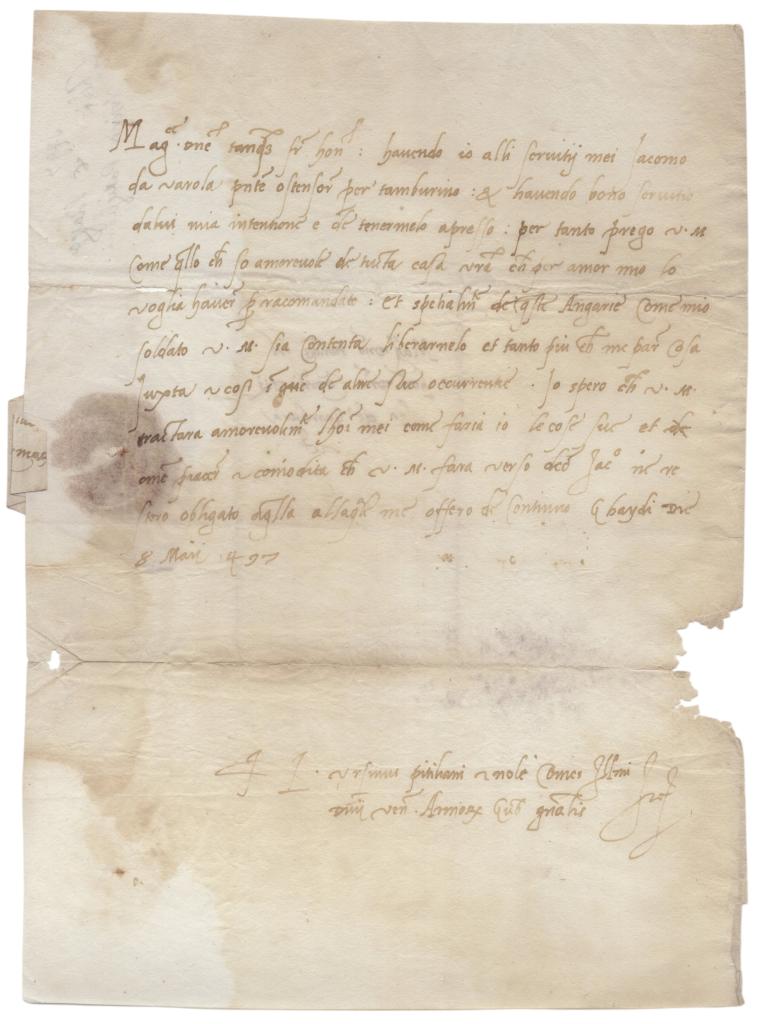 Mag.ce D.ne tanq3 fr hon. : havendo io alli servitij mei Jacomo
da varola pnte ostensor per tamburino : & havendo bono servitio
dalui mia intentione e de tenermelo apresso : per tanto prego v. M
Come qllo ch so amorevole de tucta casa vra ch per amor mio lo
voglia haver p racomandato : Et spetialm.te de qste Angarie Come mio
soldato v. M. sia Contenta liberarmelo et tanto piu ch me par Cosa
Juxta de altre sue occurrentie . Io spero ch v. M.
tractara amorevolm.te mei come faria io le cose sue et de
one piacer comodita ch v. M. fara verso dcto Jac.o ne re
stero obligato me offero de Continuo Ghaydi Die
8 Maii 497
Ursinus pitiliani nole Comes Illmi
Dnii ven. Armorx Gub gnalis